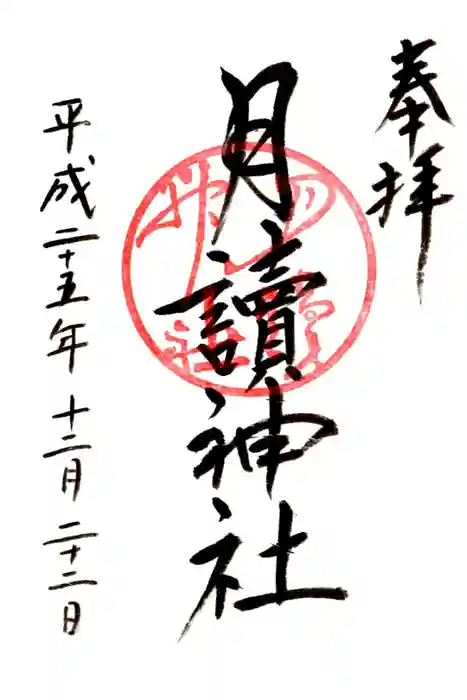 奉拝
月讀神社
平成二十五年十二月二十二日